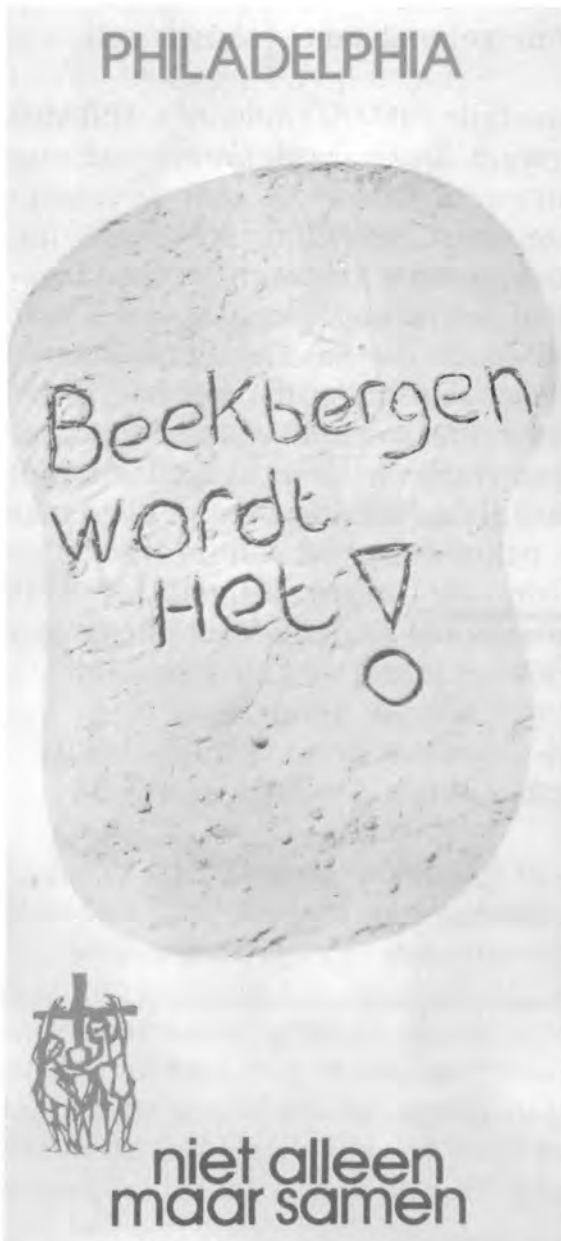 PHILADELPHIA
Beekbergen
wordt
Het!
niet alleen
maar samen